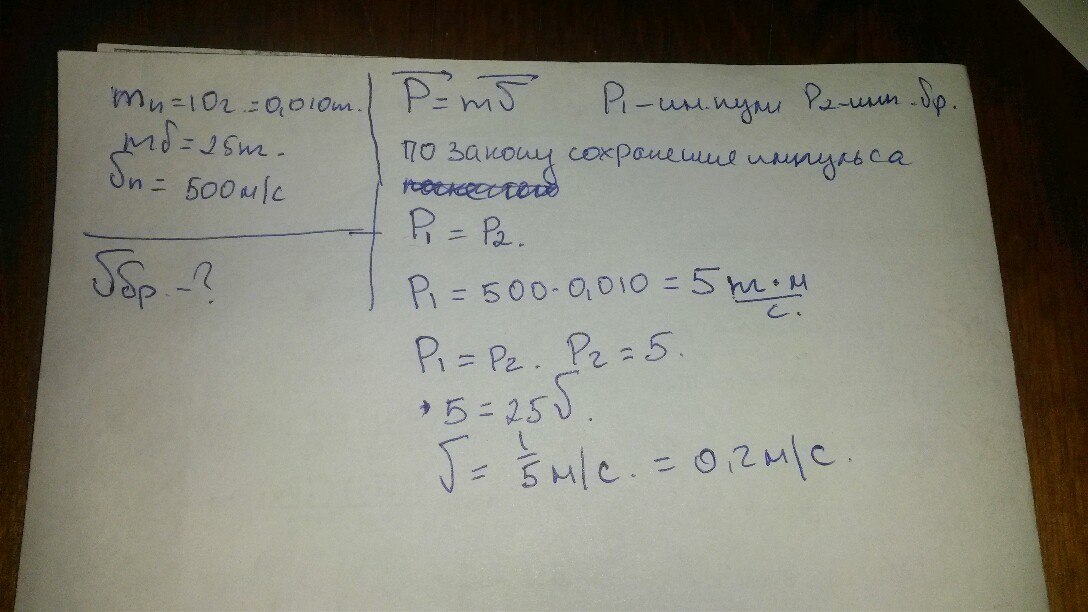 mп = 10г. = 0,010т.
mб = 25т.
υп = 500м/с
υбр. - ?
P = mυ P₁ - имп.пули P₂ - имп. бр.
по закону сохранение импульса
P₁ = P₂.
P₁ = 500 · 0,010 = 5 т·м/с.
P₁ = P₂. P₂ = 5.
5 = 25υ.
υ = 1/5 м/с. = 0,2м/с.